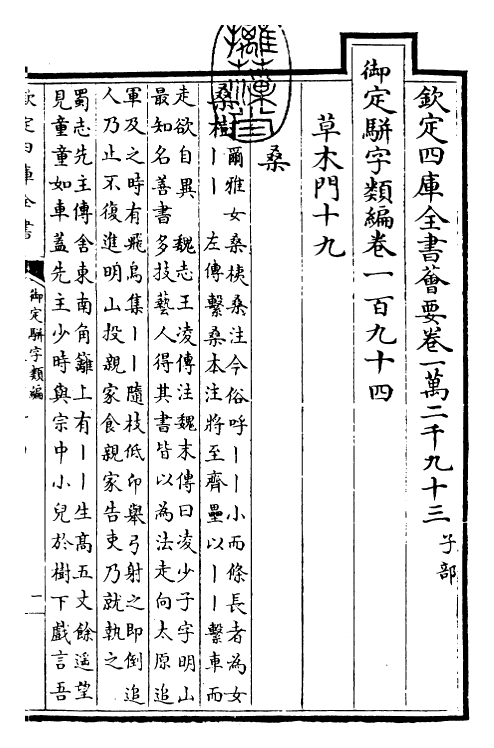 欽定四庫全書薈要卷一萬二千九十三 子部
御定駢字類編卷一百九十四
草木門十九
桑
桑樹
爾雅女桑桋桑注今俗呼丨丨小而條長者為女
丨丨 左傳繫桑本注將至齊壘以丨丨繫車而
走欲自異 魏志王凌傳注魏末傳曰凌少子字明山
最知名善書多技藝人得其書皆以為法走向太原追
軍及之時有飛鳥集丨丨隨枝低卬舉弓射之即倒追
人乃止不復進明山投親家食親家告吏乃就執之
蜀志先主傳舍東南角籬上有丨丨生高五丈餘遥望
見童童如車蓋先主少時與宗中小兒於樹下戲言吾
欽定四庫全書
御定駢字類編
一